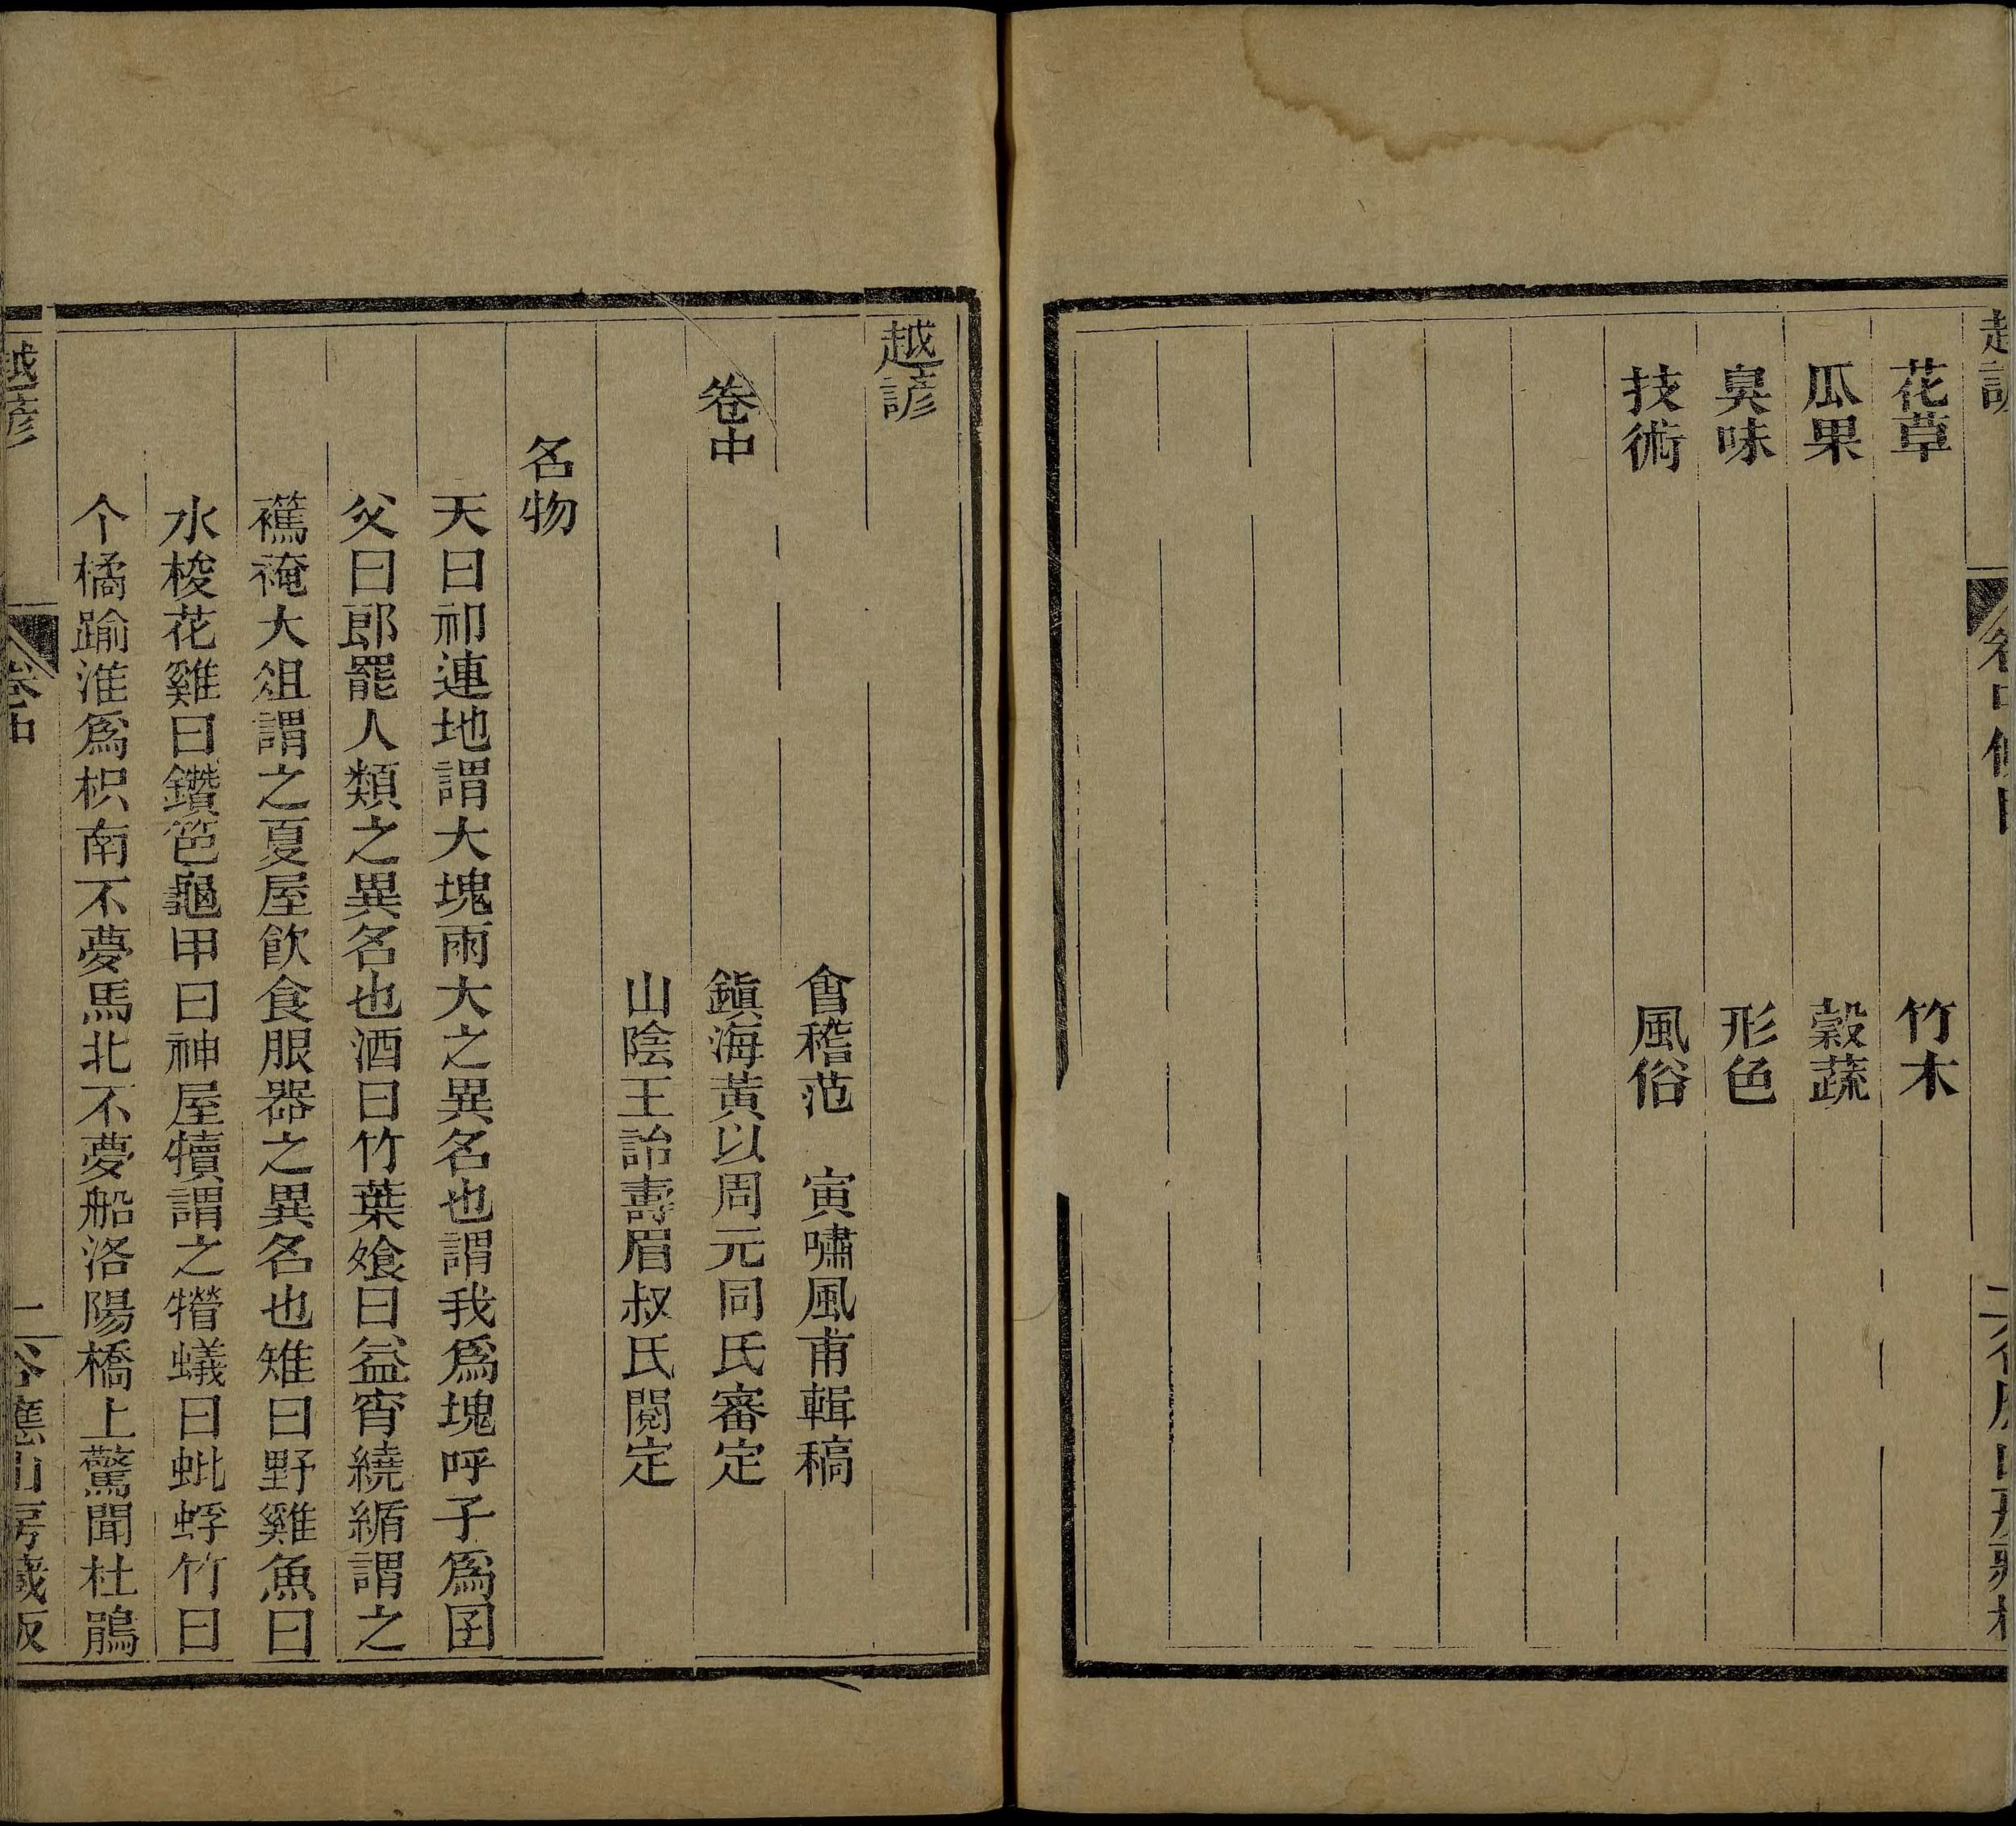 花草 竹木
瓜果 穀蔬
臭味 形色
技術 風俗
越諺
會稽范 寅嘯風甫輯稿
卷中 鎮海黃以周元同氏審定
山陰王詒壽眉叔氏閱定
名物
天曰祁連地謂大塊雨大之異名也謂我爲塊呼子爲囝
父曰郎罷人類之異名也酒曰竹葉飧曰益窅繞謂之
裺大俎謂之夏屋飲食服器之異名也雉曰野雞魚曰
水梭花雞曰鑽笆龜甲曰神屋犢謂之蟻曰蚍蜉竹曰
个橘踰淮爲枳南不夢馬北不夢船洛陽橋上驚聞杜鵑
越諺 卷中 應山房藏板